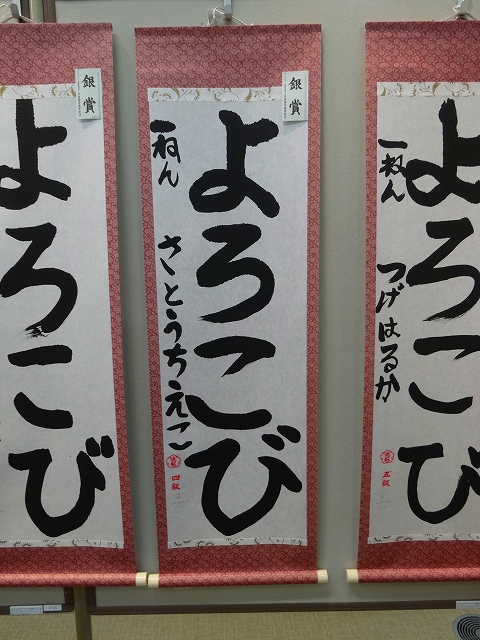 よろこび
銀賞
よろこび
一ねん
さとうちえこ
四級
銀賞
よろこび
一ねん
つげはるか
五級